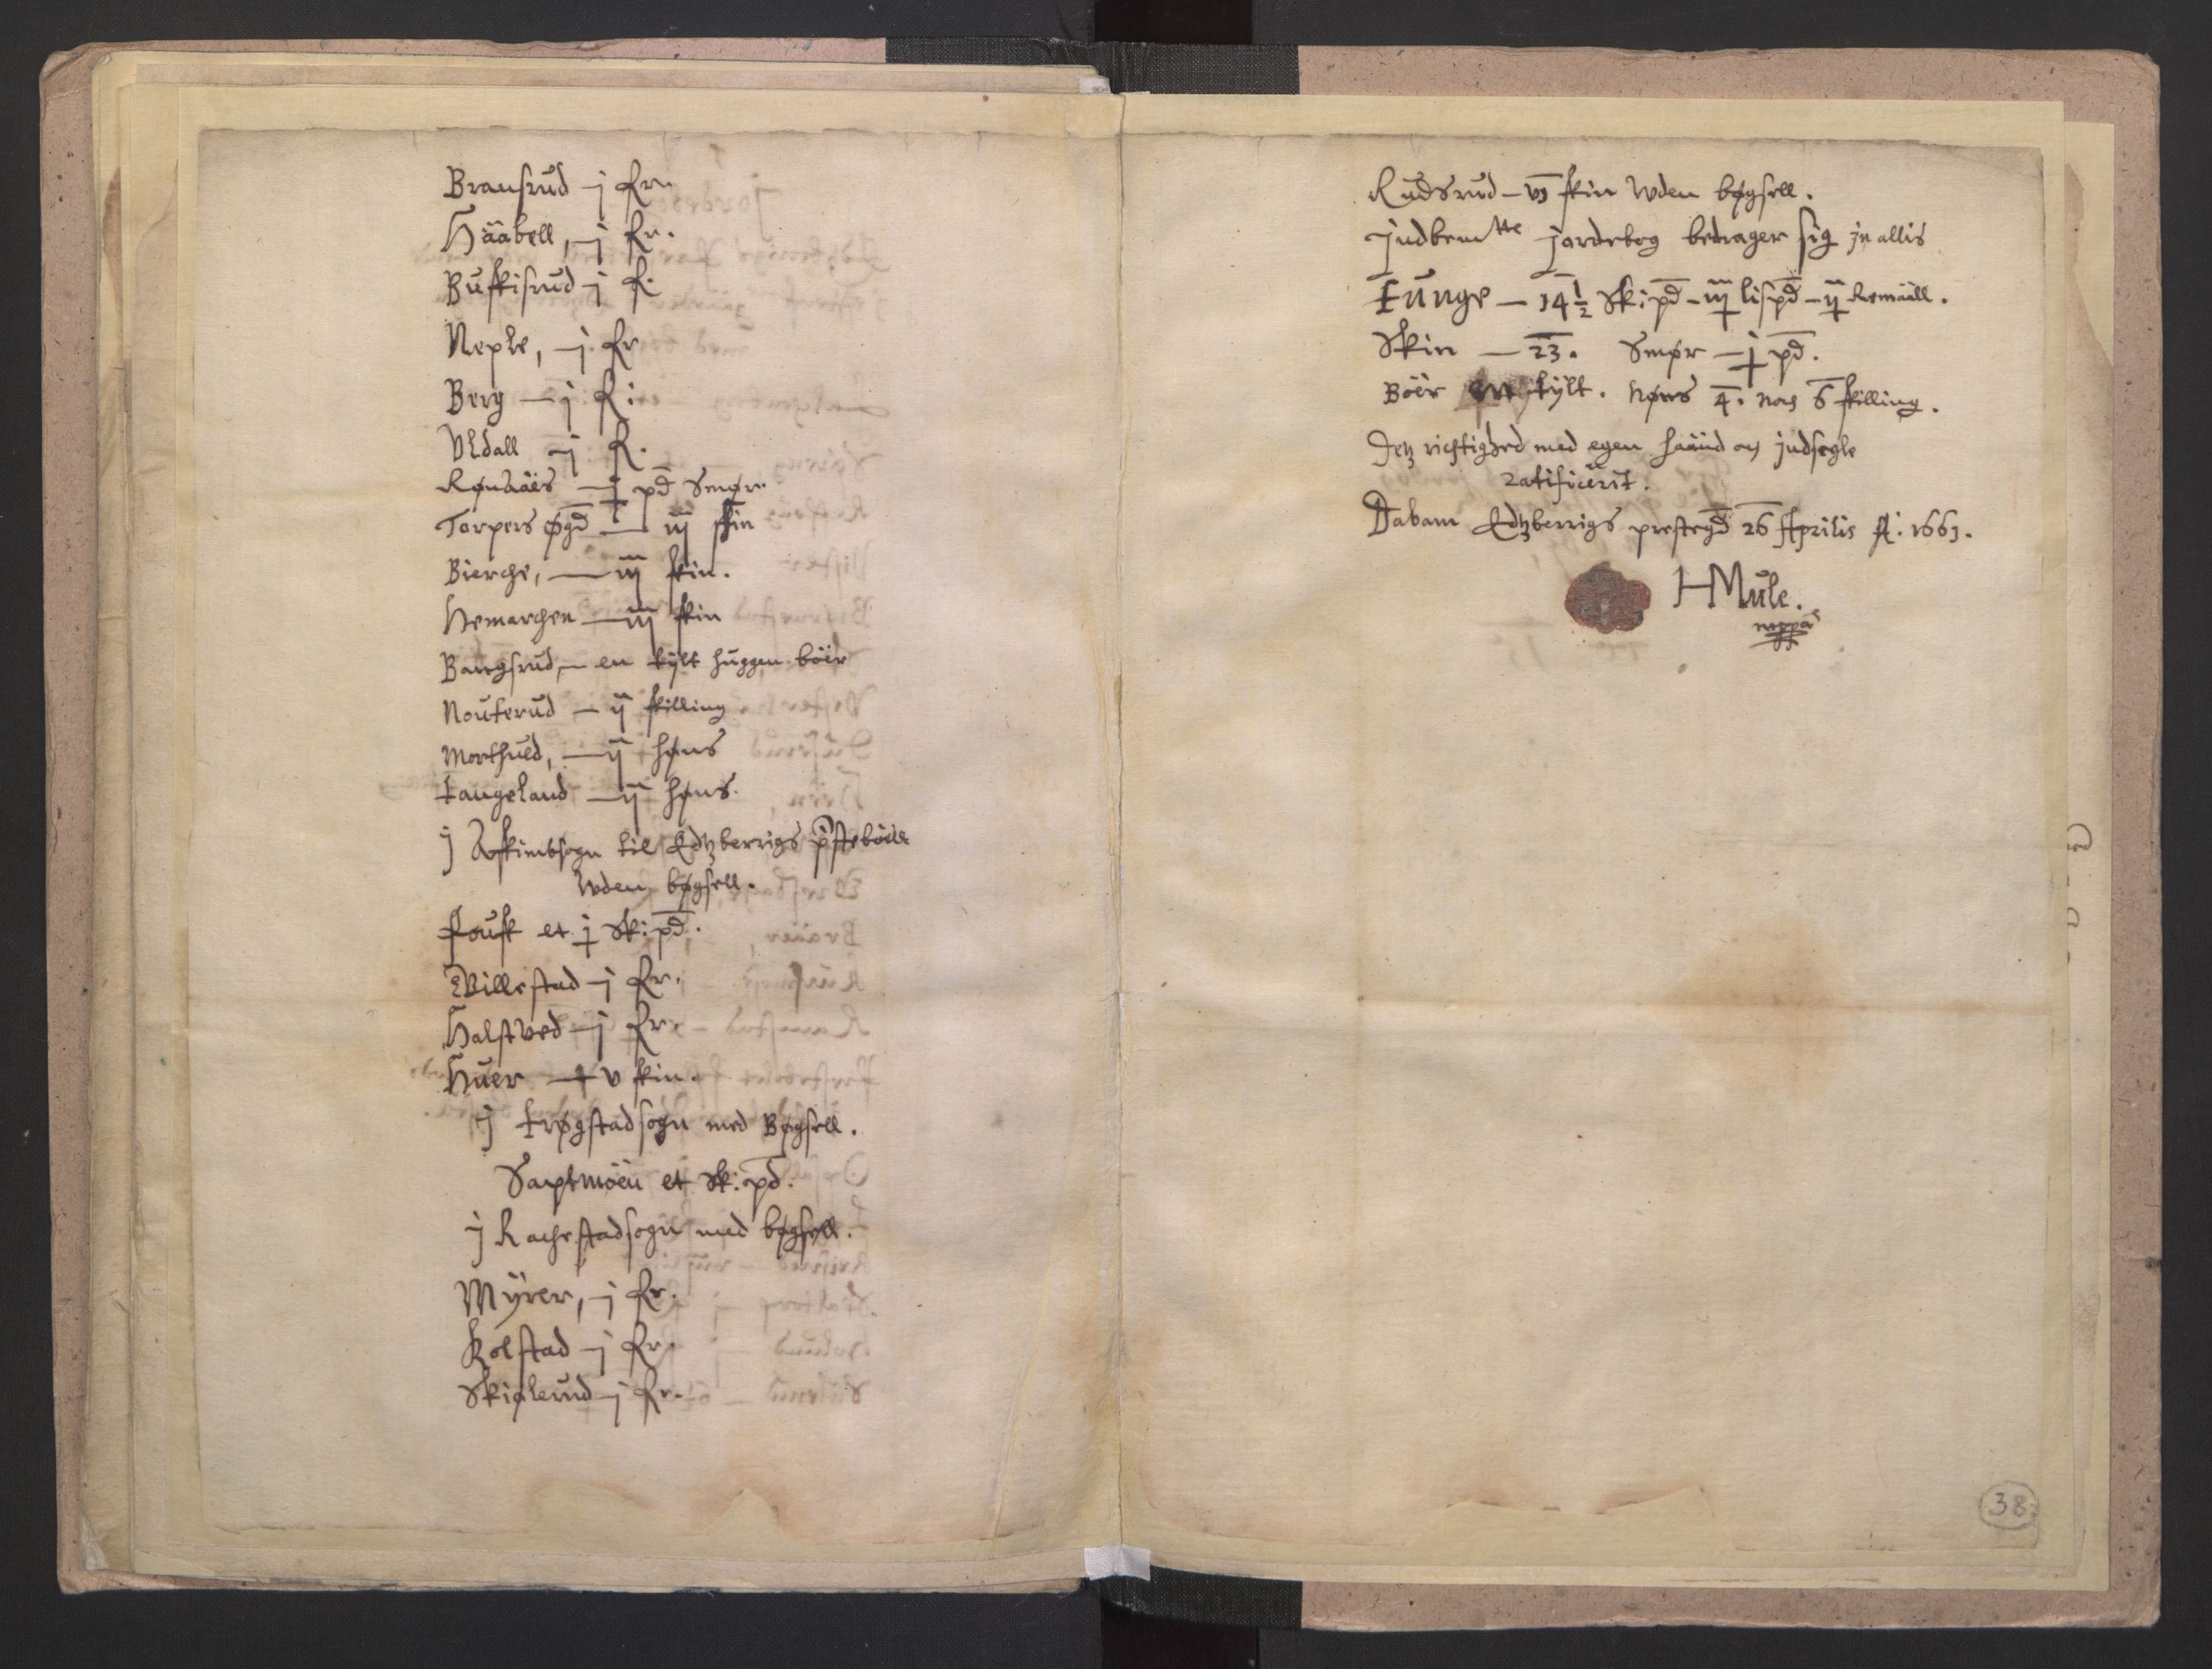 Bransrud – j fr.
Hääbell, – j fr.
Buskisrud – j f.
Neple, – j. fr
Berg – j f:
Uldall – j f.
Rønaäes – j pd Smør.
Torpers øgd – iij skin
Bierche, – iij skin.
Hemarchen – iij skin
Bangsrud, – en tylt huggen böer
Nouterud – ij skilling
Morthuld, – ij høns
Langeland – ij høns.
j Askimbsogn til Edtzberrigs pstebölle
Uden bøgsell.
Fousk et j sk:pd.
Willestad – j fr.
Halstved – j fr.
Huer – v skin.
j Trøgstadsogn med Bøgsell.
Saxtmöen et sk:pd.
j Rachestadsogn med bøgsell.
Myrer, – j fr.
Kolstad – j fr.
Skiølerud – j fr.
Rudsrud – vj skin Uden bøgsell.
judbemtte jordebog bedrager sig in allis
Tunge – 14 1/2 Sk:pd – iij lispd – ij Remääll.
Skin – 23. Smør – j pd.
Böer en tylt. Høns 4. noch 6 skilling.
Detz richtighed med egen haand och judsegle
ratificerit.
Dabam Edtzberrigs prestegd 26 Aprilis A: 1661.
HMule.
mppa
38